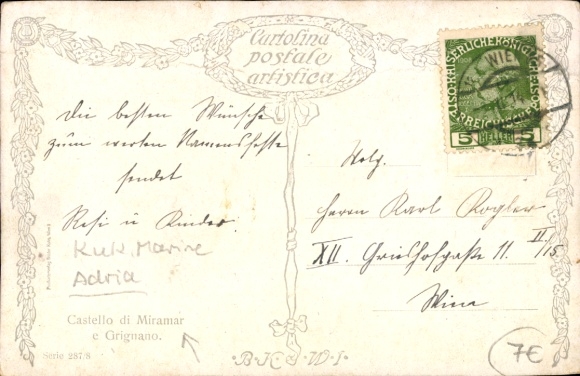 Cartolina
postale
artistica
Die besten Wünsche
zum werten Namensfeste
sendet
Resi u Kinder.
KuK. Marine
Adria
Castello di Miramar
e Grignano.
Serie 287/8
B·K·W·I·
KAISERLICHE KÖNIGLICHE ÖSTERREICHISCHE
5 HELLER 5
WIEN
Wolg.
Herrn Karl Rogler
XII. Grieshofgasse 11. II/15
Wien
7€